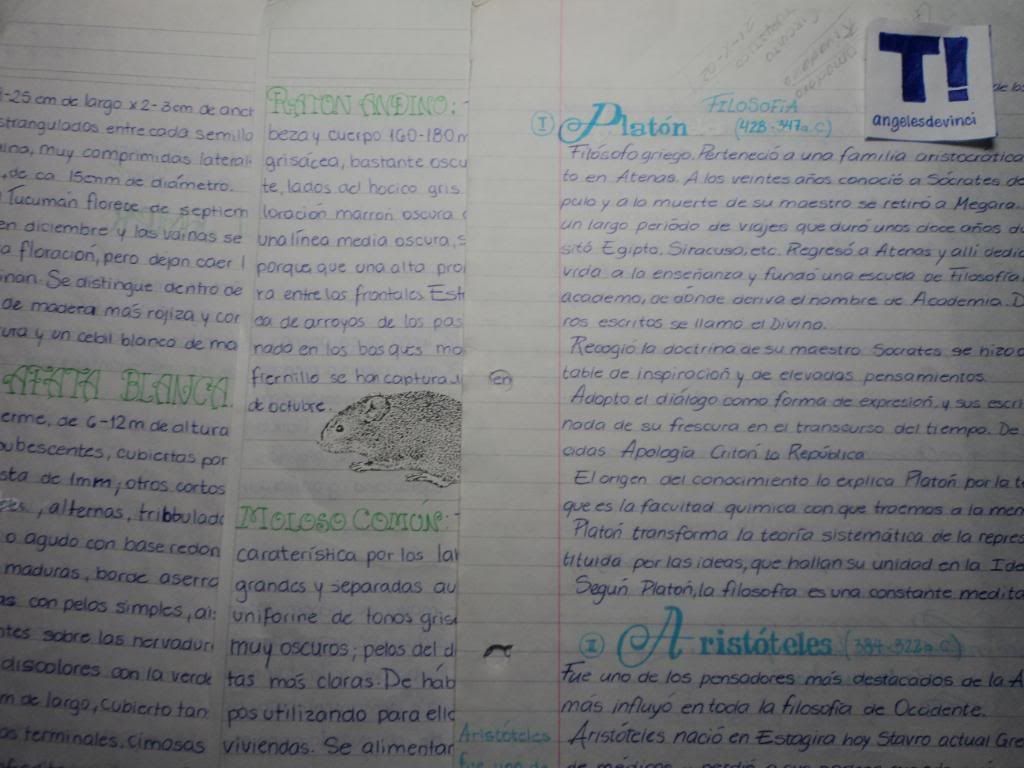 -25 cm de largo x 2-3 cm de anch
strangulados entre cada semilla
ina, muy comprimidas lateral
, de ca 15mm de diámetro.
Tucumán florece de septiem
en diciembre y las vainas se
a floración, pero dejan caer l
inan. Se distingue dentro de
de madera más rojiza y cor
ura y un cebil blanco de ma
AFATA BLANCA
erme, de 6-12m de altura
ubescentes, cubiertas por
sta de 1mm; otros cortos
, alternas, tribbulado
o agudo con base redon
maduras, borde aserra
as con pelos simples, ai
ntes sobre las nervadur
discolores con la verde
m de largo, cubierto tan
as terminales, cimosas
RATON ANDINO:
beza y cuerpo 160-180m
grisácea, bastante oscu
te, lados del hocico gris
loración marrón oscura
una línea media oscura, s
porque que una alta pro
ra entre las frontales. Est
ca de arroyos de los pas
nado en los bosques mo
frernillo se han captura
de octubre.
MOLOSO COMÚN:
caraterística por los lar
grandes y separadas au
uniforine de tonos gris
muy oscuros; pelos del d
tas más claras. De háb
pos utilizando para ello
viviendas. Se alimentar
en
Aristóteles
Fue uno de
T!
angelesdevinci
de los
FILOSOFÍA
I Platón (428-347a.C)
Filósofo griego. Perteneció a una familia aristocrática
to en Atenas. A los veintes años conoció a Sócrates de
pulo y a la muerte de su maestro se retiró a Megara.
un largo periódo de viajes que duró unos doce años d
sitó Egipto, Siracusa, etc. Regresó a Atenas y allí dedic
vida a la enseñanza y fundó una escuela de Filosofía
academo, de dónde deriva el nombre de Academia. D
ros escritos se llamo el Divino.
Recogió la doctrina de su maestro Socrates se hizo
table de inspiración y de elevadas pensamientos.
Adopto el diálogo como forma de expresión, y sus escri
nada de su frescura en el transcurso del tiempo. De
cidas Apología Critón La República
El origen del conocimiento lo explica Platón por la t
que es la facultad quimica con que traemos a la men
Platón transforma la teoría sistemática de la repres
tituida por las ideas, que hallan su unidad en la Ide
Según Platón, la filosofía es una constante medita
II Aristóteles (384-322a.C)
Fue uno de los pensadores más destacados de la A
más influyó en toda la filosofía de Occidente.
Aristóteles nació en Estagira hoy Stavro actual Gre